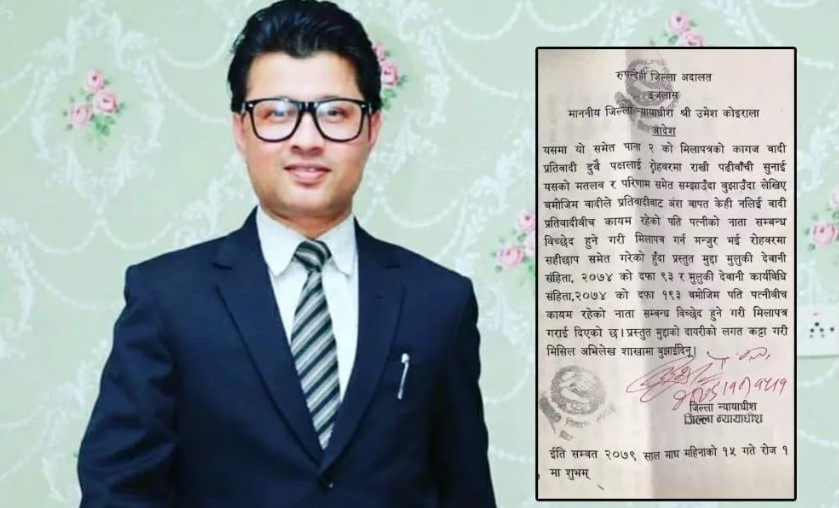 रुपन्देही जिल्ला अदालत
इजलास
माननीय जिल्ला न्यायाधीश श्री उमेश कोइराला
आदेश
यसमा यो समेत पाना २ को मिलापत्रको कागज वादी
प्रतिवादी दुवै पक्षलाई रोहवरमा राखी पढीवाँची सुनाई
यसको मतलव र परिणाम समेत सम्झाउँदा वुझाउँदा लेखिए
बमोजिम वादीले प्रतिवादीबाट अंश बापत केही नलिई वादी
प्रतिवादीबीच कायम रहेको पति पत्नीको नाता सम्बन्ध
विच्छेद हुने गरी मिलापत्र गर्न मन्जुर भई रोहवरमा
सहीछाप समेत गरेको हुँदा प्रस्तुत मुद्दा मुलुकी देवानी
संहिता, २०७४ को दफा ९३ र मुलुकी देवानी कार्यविधि
संहिता,२०७४ को दफा १९३ बमोजिम पति पत्नीबीच
कायम रहेको नाता सम्बन्ध विच्छेद हुने गरी मिलापत्र
गराई दिएको छ। प्रस्तुत मुद्दाको दायरीको लगत कट्टा गरी
मिसिल अभिलेख शाखामा वुझाईदिनू।
जिल्ला न्यायाधीश
जिल्ला न्यायाधीश
ईति सम्बत २०७९ साल माघ महिनाको १५ गते रोज १
मा शुभम्